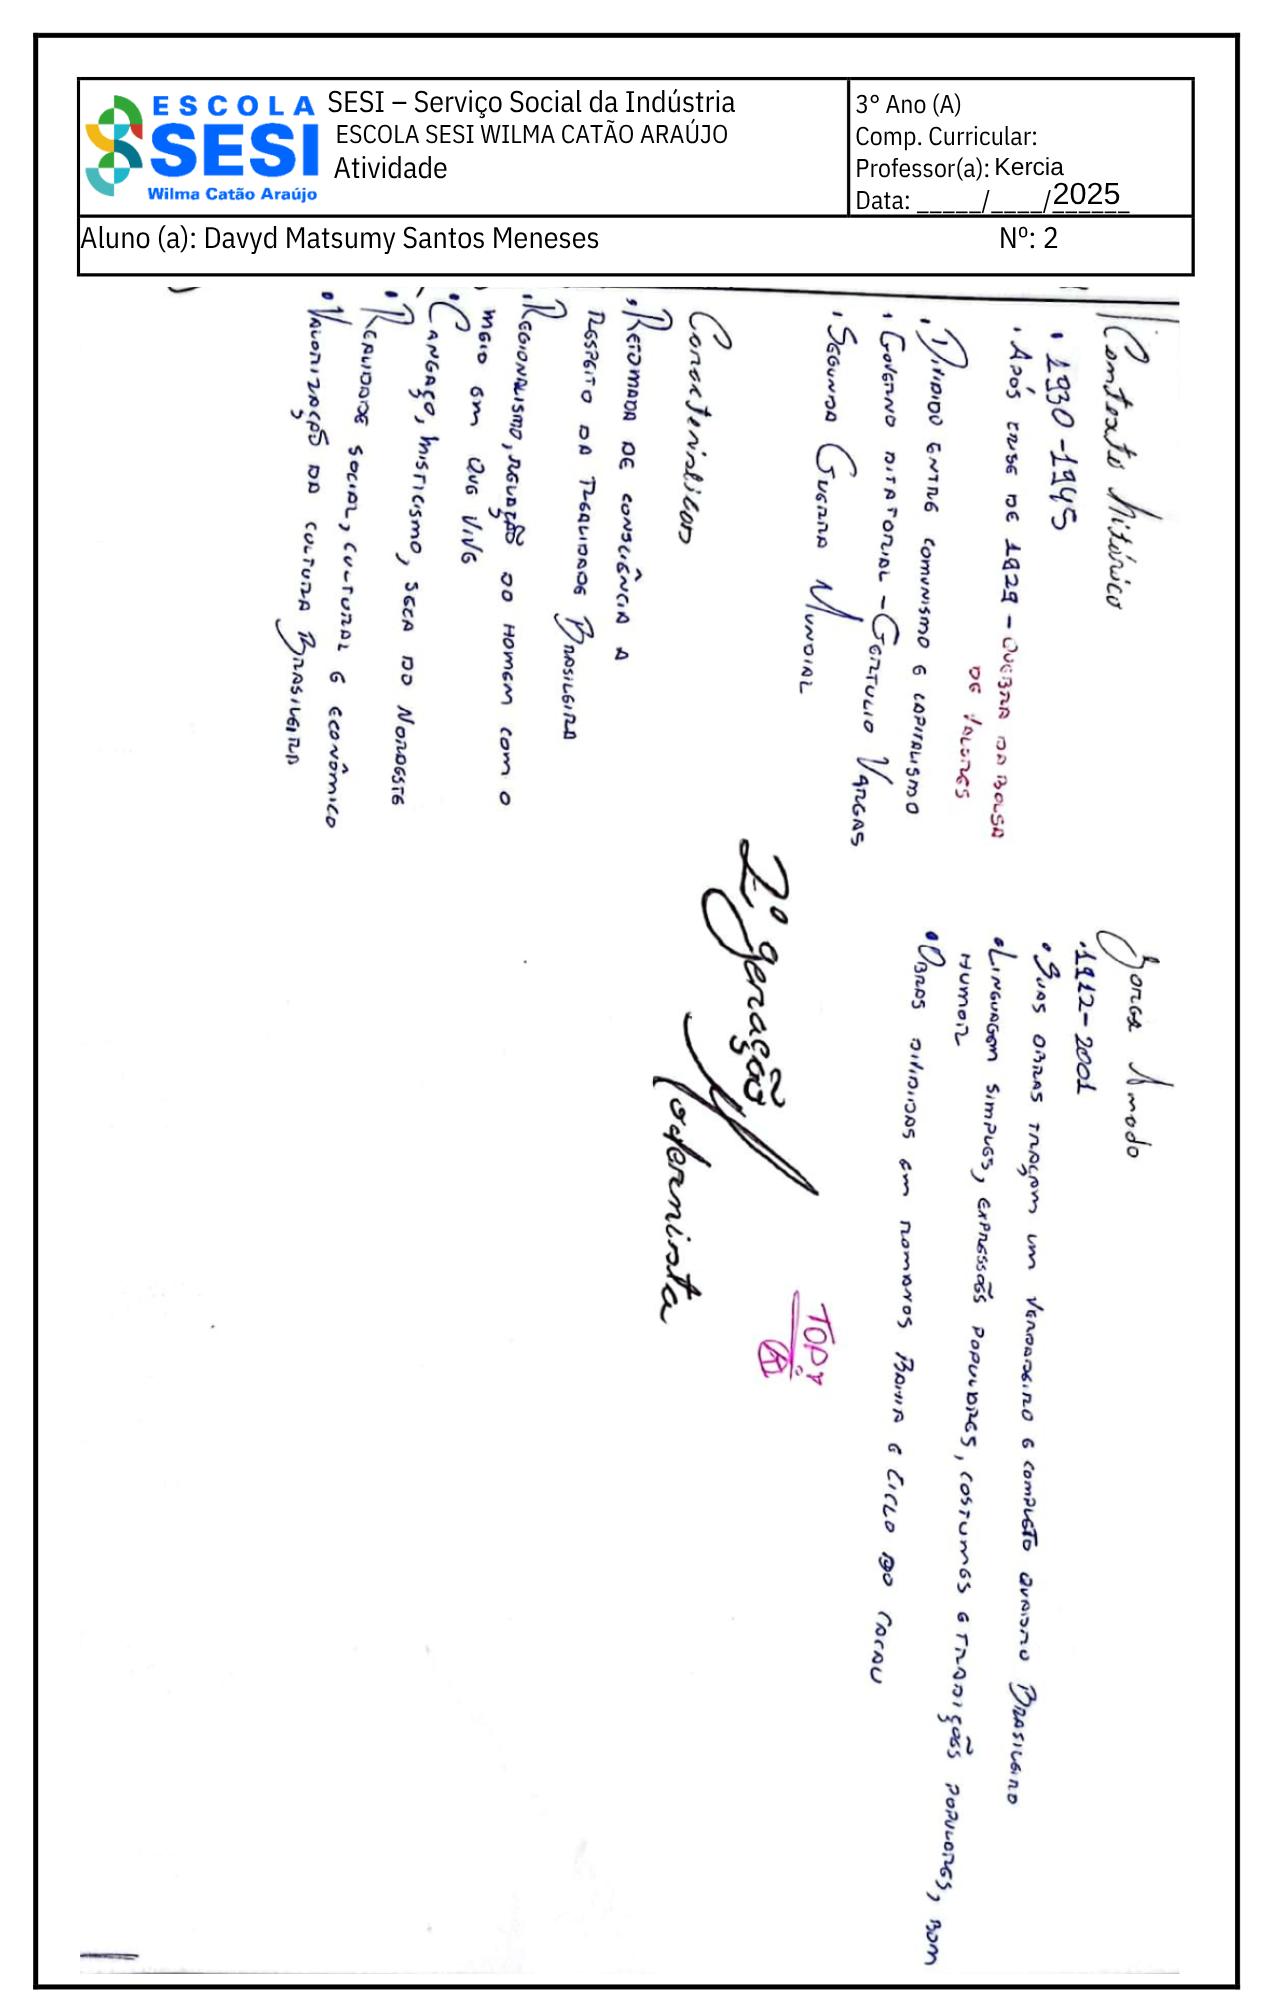 ESCOLA
SESI
Wilma Catão Araújo
SESI – Serviço Social da Indústria
ESCOLA SESI WILMA CATÃO ARAÚJO
Atividade
3° Ano (A)
Comp. Curricular:
Professor(a): Kercia
Data: _____/____/2025
Aluno (a): Davyd Matsumy Santos Meneses Nº: 2
Contexto histórico
• 1930-1945
• Após crise de 1929 - Quebra da bolsa
de valores
• Dividido entre comunismo e capitalismo
• Governo ditatorial - Getulio Vargas
• Segunda Guerra Mundial
Características
• Retomada de consciência a
respeito da realidade Brasileira
• Regionalismo, relação do homem com o
meio em que vive
• Cangaço, misticismo, seca do Nordeste
• Realidade social, cultural e econômico
• Valorização da cultura Brasileira
2ª geração
Modernista
Jorge Amado
• 1912-2001
• Suas obras traçam um verdadeiro e completo quadro Brasileiro
• Linguagem simples, expressões populares, costumes e tradições populares, bom
humor
• Obras divididas em romances Bahia e Ciclo do cacau
TOP